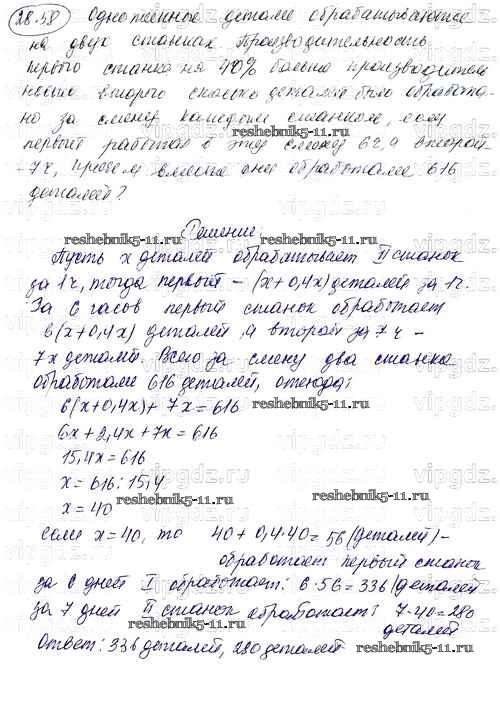 28.58 Однотипные детали обрабатываются
на двух станках. Производительность
первого станка на 40% больше производитель
ностью второго сколько деталей было обработа-
но за смену каждым станком, если
первый работал в эту смену 6ч, а второй
- 7ч, причем вместе они обработали 616
деталей?
Решение:
reshebnik5-11.ru reshebnik5-11.ru
Пусть x деталей обрабатывает II станок
за 1ч, тогда первый – (x+0,4x) деталей за 1ч.
За 6 часов первый станок обработает
6(x+0,4x) деталей, а второй за 7ч –
7x деталей. Всего за смену два станка
обработали 616 деталей, отсюда:
6(x+0,4x)+7x=616
reshebnik5-11.ru
6x+2,4x+7x=616
15,4x=616
x=616:15,4
reshebnik5-11.ru reshebnik5-11.ru
x=40
если x=40, то 40+0,4·40=56 (деталей) –
обработает первый станок
reshebnik5-11.ru
за 6 дней I обработает: 6·56=336 (деталей
за 7 дней II станок обработает: 7·40=280
деталей
reshebnik5-11.ru
Ответ: 336 деталей, 280 деталей
reshebnik5-11.ru
vipgdz.ru